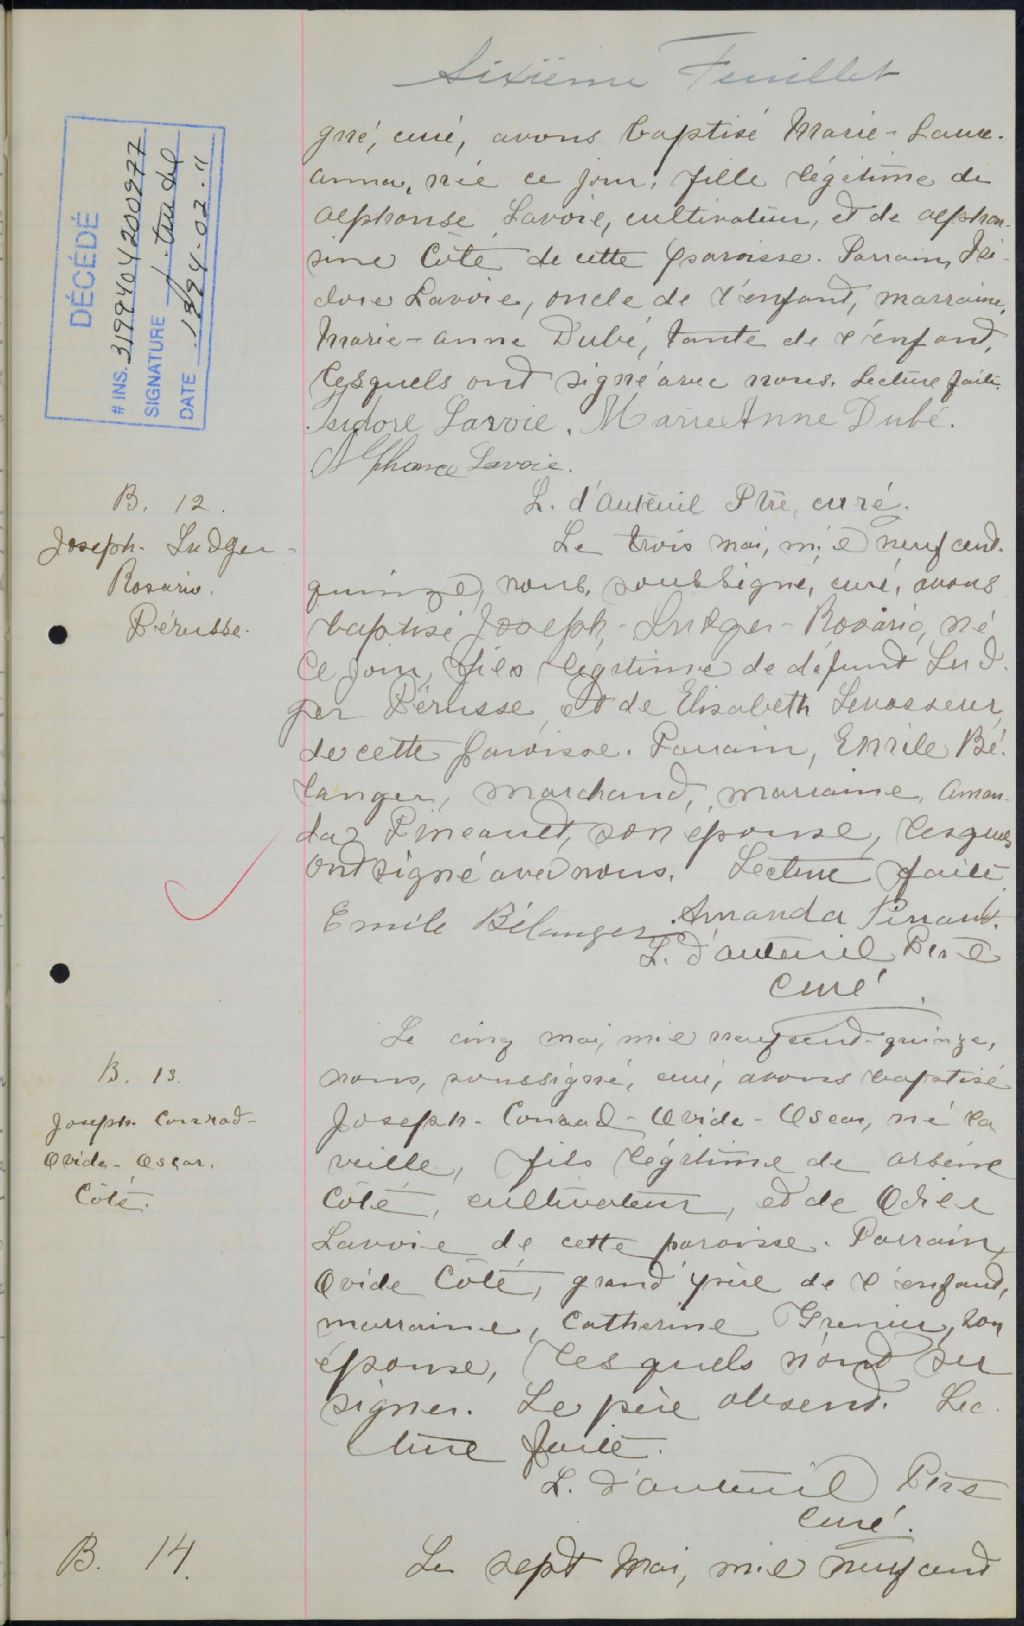 Sixième Feuillet
gné, curé, avons baptisé Marie-Laure-
Anna, née ce jour, fille légitime de
Alphonse Lavoie, cultivateur, et de Alphon-
sine Côté de cette paroisse. Parrain, Isi-
dore Lavoie, oncle de l'enfant, marraine,
Marie-Anne Dubé, tante de l'enfant,
lesquels ont signé avec nous. Lecture faite.
Isidore Lavoie. Marie Anne Dubé.
Alphonse Lavoie.
L. d'Auteuil Ptre, curé.
DÉCÉDÉ
# INS. 3199404200277
SIGNATURE
DATE 1994-02-11
B. 12.
Joseph-Ludger-
Rosario.
Pérusse.
Le trois mai, mil neuf cent-
quinze, nous, soussigné, curé, avons
baptisé Joseph-Ludger-Rosario, né
ce jour, fils légitime de défunt Lud-
ger Pérusse et de Elisabeth Levasseur,
de cette paroisse. Parrain, Emile Bé-
langer, marchand, marraine, Aman-
da Pineault, son épouse, lesquels
ont signé avec nous. Lecture faite.
Emile Bélanger Amanda Pinault.
L. d'Auteuil Ptre
curé.
B. 13.
Joseph Conrad-
Ovide-Oscar.
Côté.
Le cinq mai, mil neuf cent-quinze,
nous, soussigné, curé, avons baptisé
Joseph-Conrad-Ovide-Oscar, né la
veille, fils légitime de Arsène
Côté, cultivateur, et de Odile
Lavoie de cette paroisse. Parrain,
Ovide Côté, grand'père de l'enfant,
marraine, Catherine Grenier, son
épouse, lesquels n'ont su
signer. Le père absent. Lec-
ture faite.
L. d'Auteuil Ptre
curé.
B. 14.
Le sept Mai, mil neuf cent